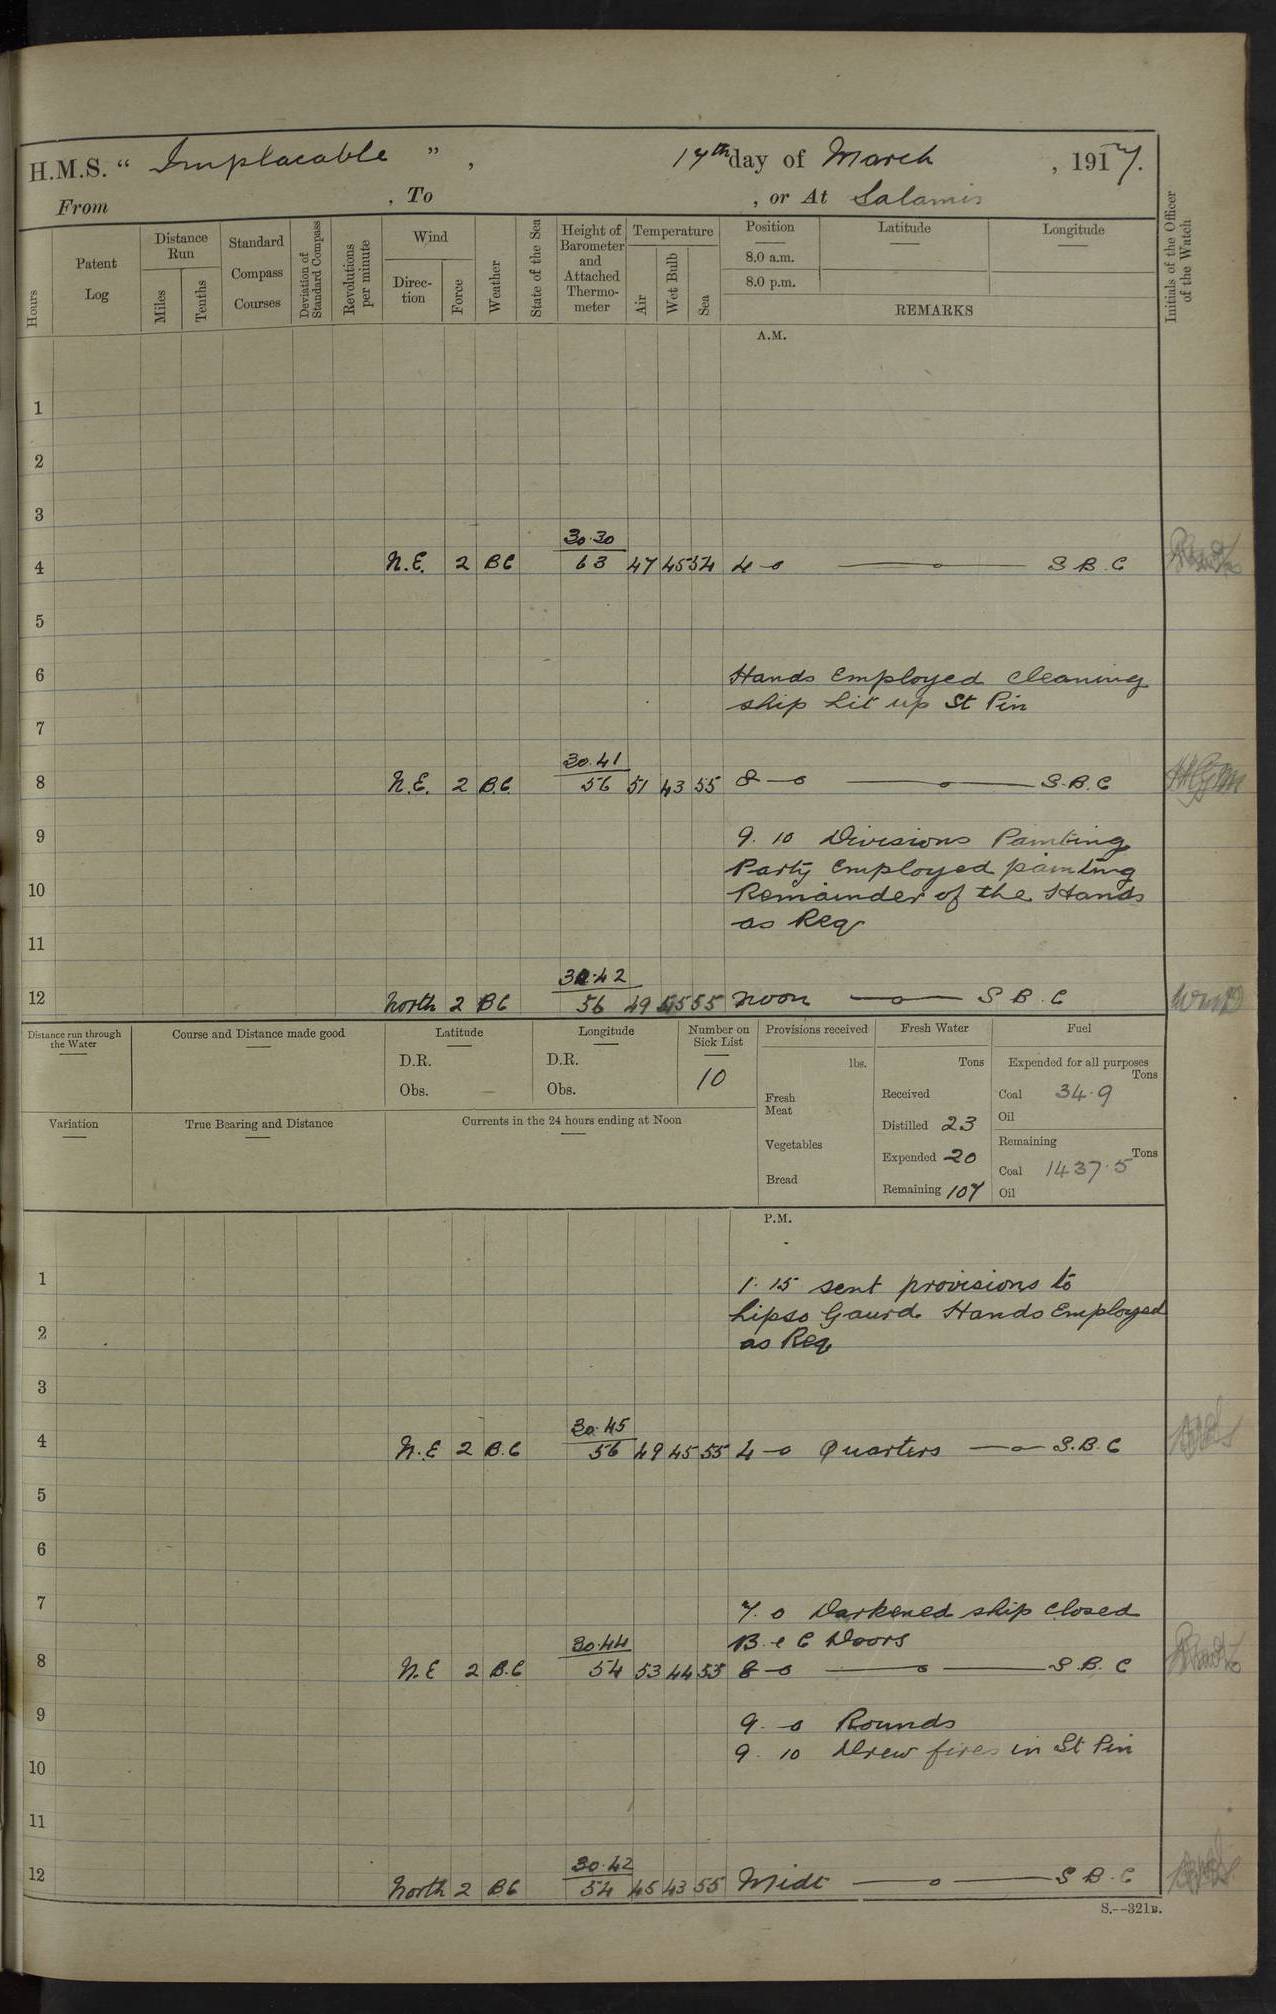 H.M.S. “ Implacable ” , 17th day of March , 1917.
From , To , or At Salamis
Hours
Patent Log
Distance Run
Miles
Tenths
Standard Compass Courses
Deviation of Standard Compass
Revolutions per minute
Wind
Direction
Force
Weather
State of the Sea
Height of Barometer and Attached Thermometer
Temperature
Air
Wet Bulb
Sea
Position
8.0 a.m.
8.0 p.m.
Latitude
Longitude
REMARKS
Initials of the Officer of the Watch
A.M.
1
2
3
30.30
4 N.E. 2 BC 63 47 45 54 4-0 —o— S.B.C
5
6 Hands Employed cleaning
ship Lit up St Pin
7
30.41
8 N.E. 2 B.C. 56 51 43 55 8-0 —o— S.B.C
9 9. 10 Divisions Painting
Party Employed painting
10 Remainder of the Hands
as Req
11
30.42
12 North 2 BC 56 49 45 55 Noon —o— S B.C
Distance run through the Water
Course and Distance made good
Latitude
D.R.
Obs. —
Longitude
D.R.
Obs.
Number on Sick List
10
Provisions received
lbs.
Fresh Meat
Vegetables
Bread
Fresh Water
Tons
Received
Distilled 23
Expended 20
Remaining 107
Fuel
Expended for all purposes
Tons
Coal 34.9
Oil
Remaining
Tons
Coal 1437.5
Oil
Variation
True Bearing and Distance
Currents in the 24 hours ending at Noon
P.M.
1 1. 15 sent provisions to
Lipso Gaurd Hands Employed
2 as Req
3
30.45
4 N.E 2 B.C 56 49 45 55 4-0 Quarters —o— S.B.C
5
6
7 7. 0 Darkened ship closed
B & C Doors
30.44
8 N.E 2 B.C 54 53 44 55 8-0 —o— S.B.C
9 9. 0 Rounds
9. 10 Drew fires in St Pin
10
11
30.42
12 North 2 BC 54 45 43 55 Midt —o— S B.C
S.--321B.